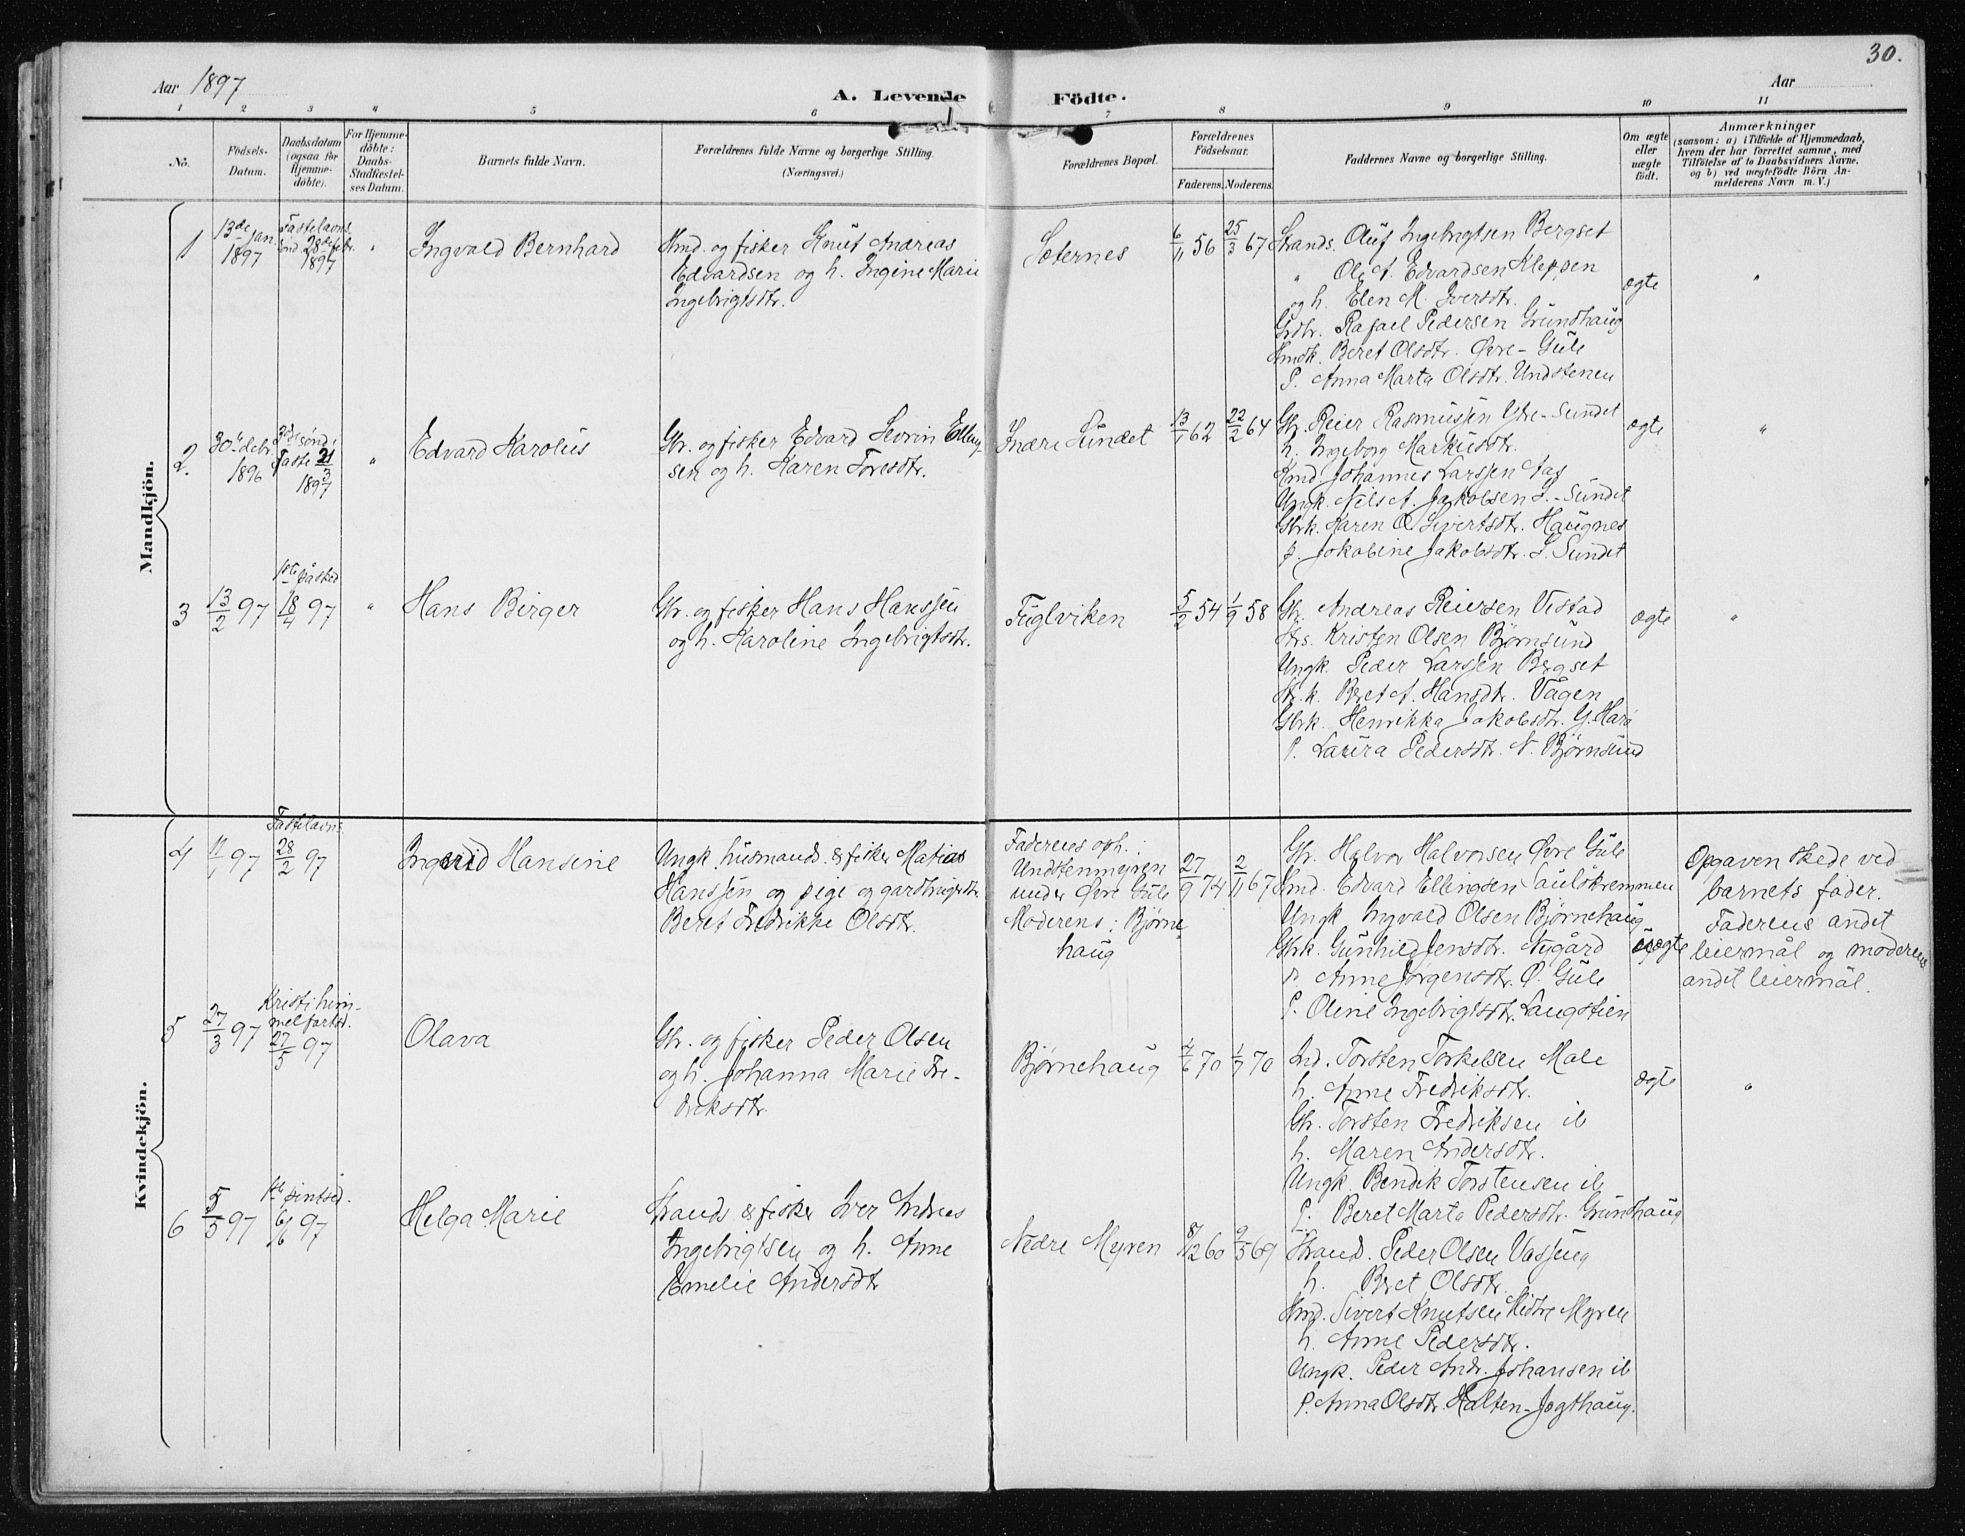 30.
Aar 1897
A. Levende Födte.
Aar
1 2 3 " 5 6 7 8 9 10 11
No.
Födsels-
Datum.
Daabsdatum
(ogsaa for
Hjemme-
döbte).
For Hjemme-
döbte:
Daabs-
Stadfæstel-
ses Datum.
Barnets fulde Navn.
Forældrenes fulde Navne og borgerlige Stilling.
(Næringsvei.)
Forældrenes Bopæl.
Forældrenes
Födselsaar.
Faderens. Moderens.
Faddernes Navne og borgerlige Stilling.
Om ægte
eller
uægte
födt.
Anmærkninger
(saasom: a) i Tilfælde af Hjemmedaab,
hvem der har forrettet samme, med
Tilföielse af to Daabsvidners Navne.
og b) ved uægtefödte Börn An-
melderens Navn m. V.)
Mandkjön.
1
13de jan.
1897
Fastelavns
sønd 28de febr.
1897
"
Ingvald Bernhard
Hmd. og fisker Knut Andreas
Edvardsen og h. Ingine Marie
Ingebrigtsdtr.
Sæternes
6/11 56
25/3 67
Strands. Oluf Ingebrigtsen Bergset
" Ole A. Edvardsen Kleppen
og h. Elen M. Iversdtr.
Grdbr. Rafael Pedersen Grundhaug
Hmdk. Beret Olsdtr. Øvre-Gule
P. Anna Marta Olsdtr. Undstenen
ægte
"
2.
30te debr
1896
3die sønd i
Faste 21/3
1897
"
Edvard Karolus
Gbr. og fisker Edvard Sevrin Elling-
sen og h. Karen Toresdtr.
Indre Sundet
13/1 62
22/2 64
Gbr. Reier Rasmussen Ytre-Sundet
h. Ingeborg Markusdtr.
Kmd Johannes Larssen Aas
Ungk. Nils A. Jakobsen I.-Sundet
Gbrk. Karen O Sivertsdtr. Haugnes
p. Jokobine Jakobsdtr. I. Sundet
ægte
"
3
13/2 97
1ste påsked
18/4 97
"
Hans Birger
Gbr. og fisker Hans Hanssen
og h. Karoline Ingebrigtsdtr.
Fuglviken
5/2 54
1/9 58
Gbr. Andreas Reiersen Vestad
Strs. Kristen Olsen Bjørnsund
Ungk. Peder Larssen Bergset
Str.k. Beret A. Hansdtr. Vågen
Gbrk. Henrikka Jakobsdtr. Y. Harø
P. Laura Pedersdtr. N. Bjørnsund
ægte
"
Kvindekjön.
4
11/1 97
Fastelavns
28/2 97
Ingerid Hansine
Ungk. husmands. & fisker Matias
Hanssen og pige og gardbrugerdtr.
Beret Fredrikke Olsdtr.
Faderens oph.:
Undstenmyren
under Øvre Gule
Moderens: Bjørne
haug
27/9 74
2/11 67
Gbr. Halvor Halvorsen Øvre Gule
Hmd. Edvard Ellingsen Aulskremmen
Ungk. Ingvald Olsen Bjørnehaug
Gbrk. Gunhild Jensdtr. Nygård
P. Anne Jørgensdtr. Ø. Gule
P. Oline Ingebrigtsdtr. Langstien
uægte
Opgaven skede ved
barnets fader.
Faderens andet
leiermål og moderens
andet leiermål.
5
27/3 97
Kristi him-
melfartsd.
27/5 97
Olava
Gbr. og fisker Peder Olsen
og h. Johanna Marie Fre-
driksdtr.
Bjørnehaug
4/6 70
1/7 70
Ind. Torsten Torkelsen Male
h. Anne Fredriksdtr.
Gbr. Torsten Fredriksen ib
h. Maren Andersdtr.
Ungk. Bendik Torstensen ib
P. Beret Marta Pedersdtr. Grundhaug
ægte
"
6
5/5 97
1ste pintsed.
6/6 97
Helga Marie
Strands & fisker Iver Andreas
Ingebrigtsen og h. Anne
Emelie Andersdtr
Nedre Myren
8/12 60
9/5 69
Strand. Peder Olsen Vasseng
h. Beret Olsdtr.
Hmd. Sivert Knutsen Nedre Myren
h. Anne Pedersdtr.
Ungk. Peder Andr. Johansen ib
P. Anna Olsdtr. Halten-Jogthaug.